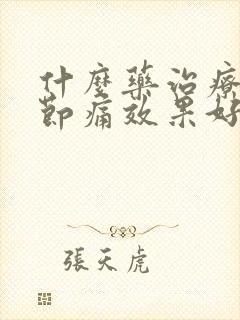 什麼藥治療
節痛效果好
張天虎